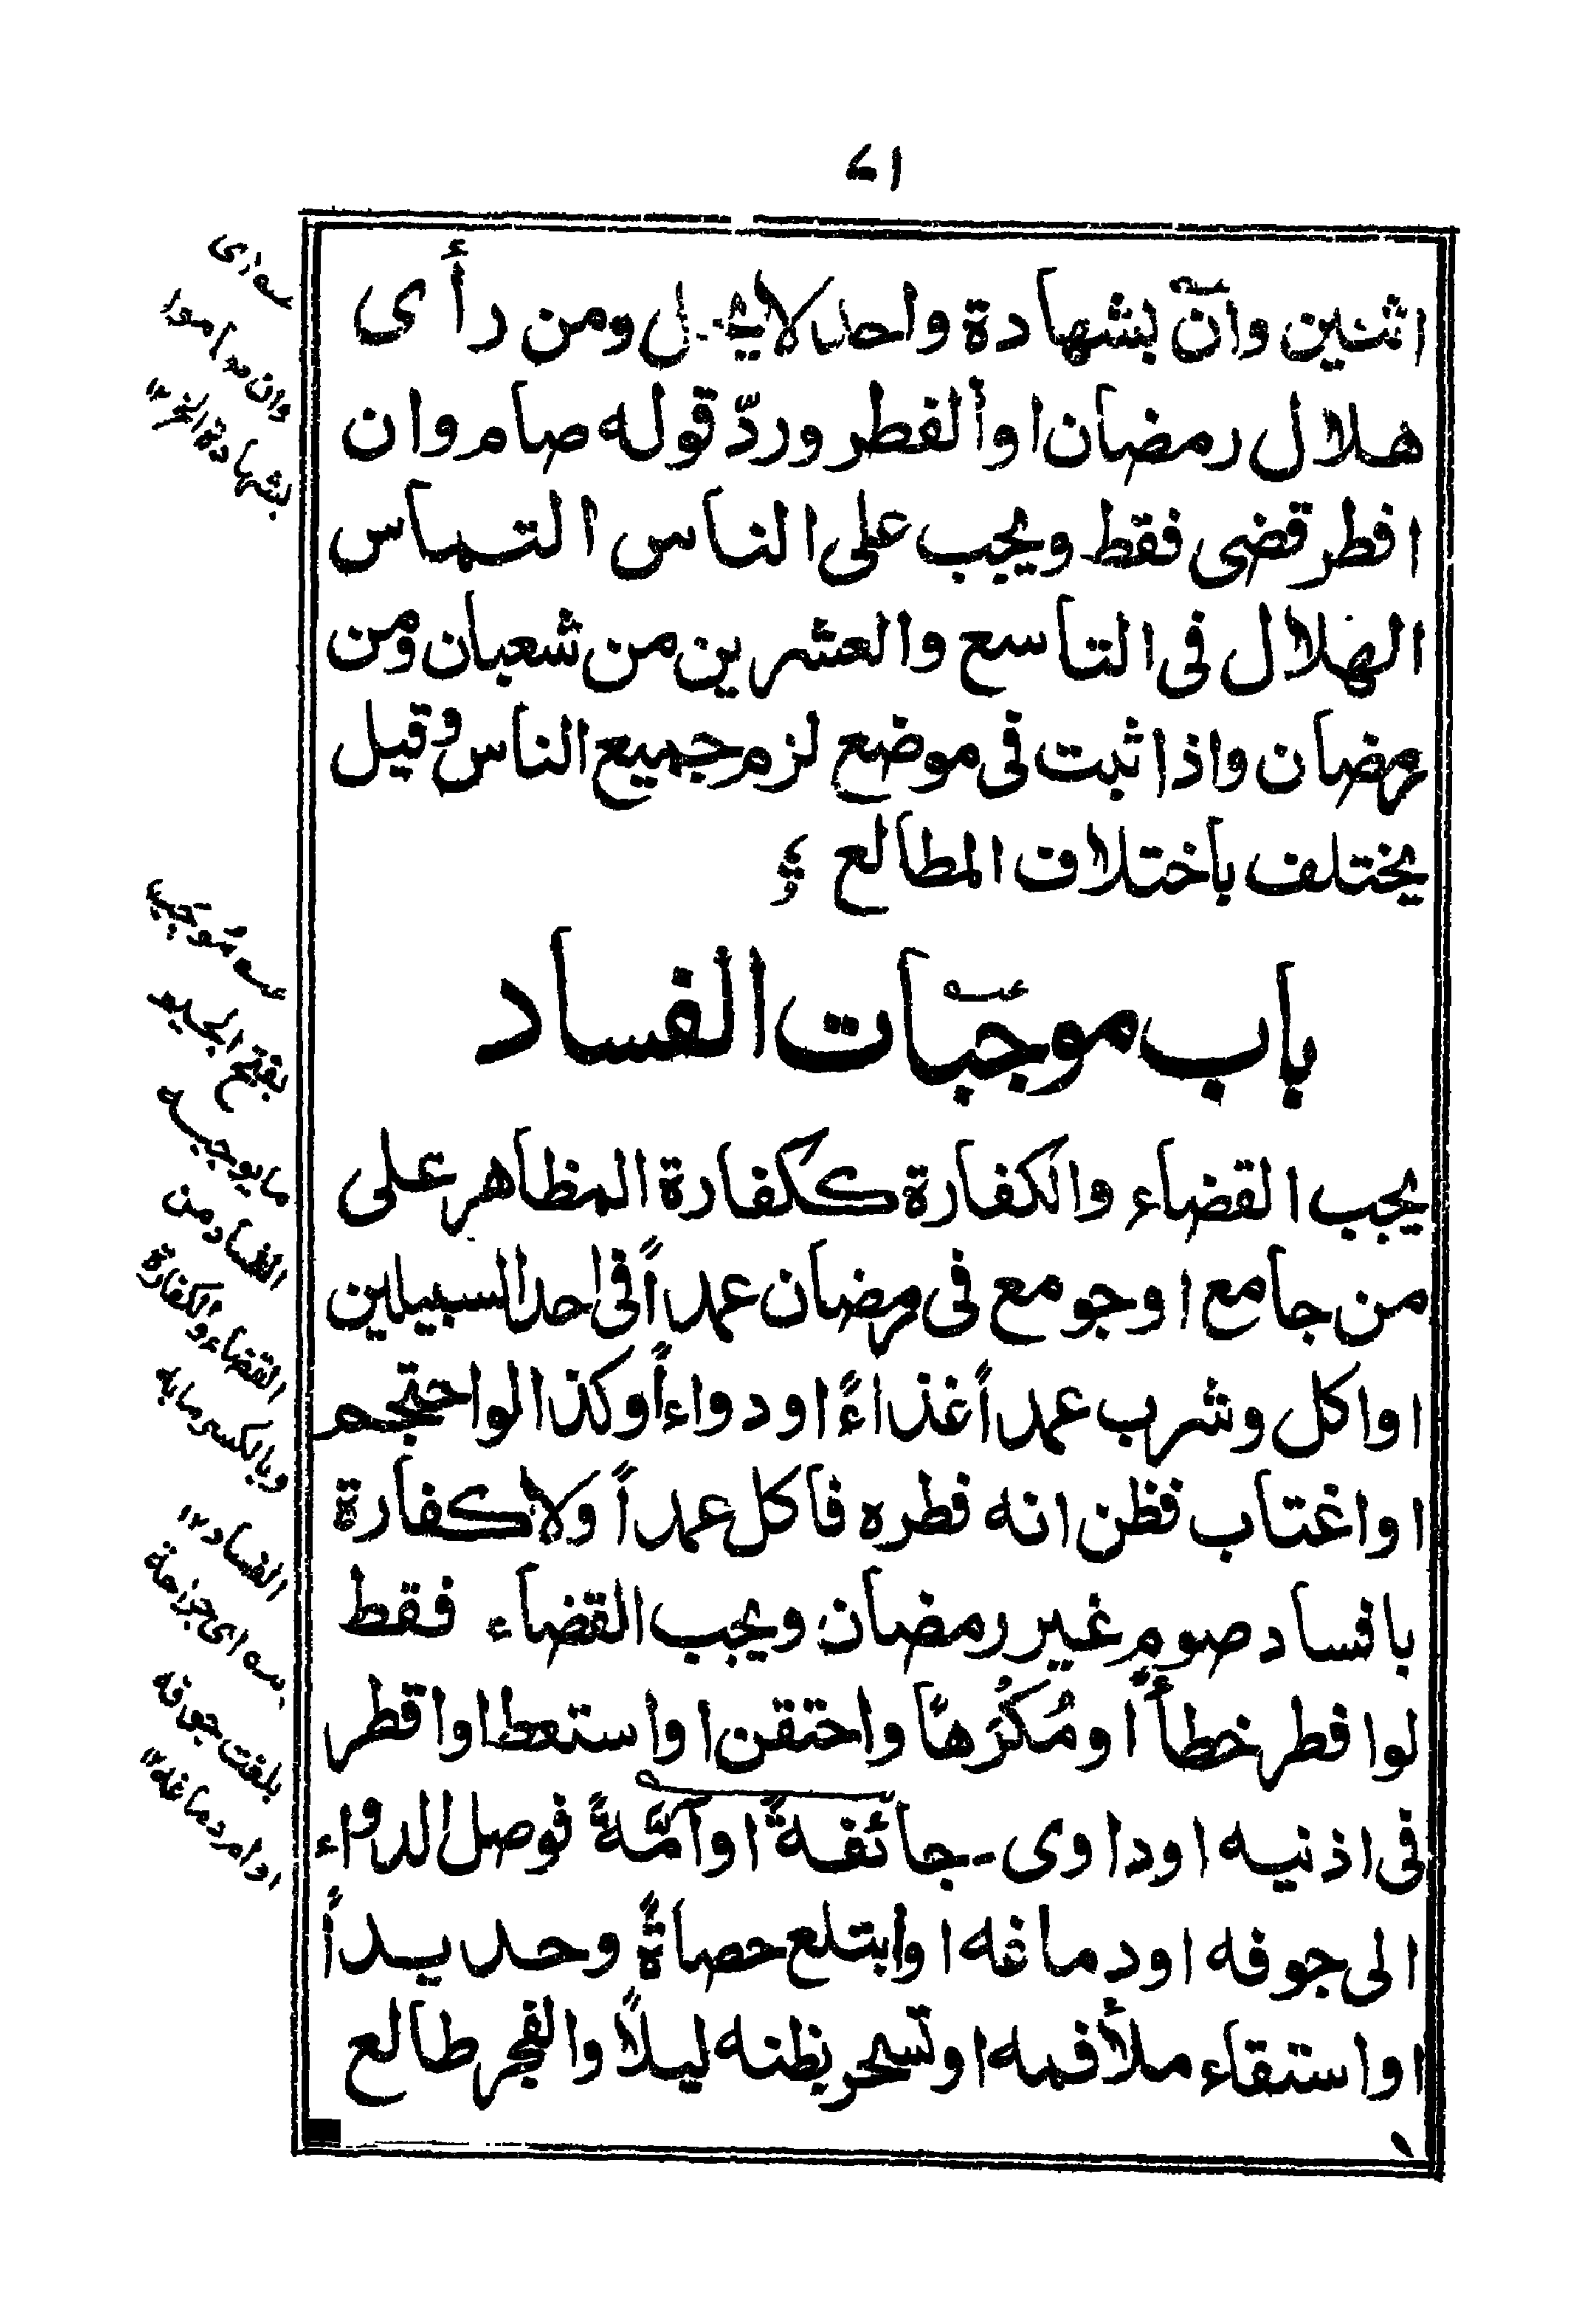 ٤١
اثنين وان بشهادة واحد لا يحل ومن رأى
هلال رمضان او الفطر وردّ قوله صام وان
افطر قضى فقط ويجب على الناس التماس
الهلال فى التاسع والعشرين من شعبان ومن
رمضان واذا ثبت فى موضع لزم جميع الناس وقيل
يختلف باختلاف المطالع
باب موجبات الفساد
يجب القضاء والكفارة ككفارة المظاهر على
من جامع او جومع فى رمضان عمداً فى احد السبيلين
او اكل وشرب عمداً غذاءً او دواءاً وكذا لو احتجم
او اغتاب فظن انه فطره فاكل عمداً ولا كفارة
بافساد صوم غير رمضان ويجب القضاء فقط
لو افطر خطأً او مُكْرَهًا واحتقن او استعط او اقطر
فى اذنيه او داوى جائفةً او آمّةً فوصل الدواء
الى جوفه او دماغه او ابتلع حصاةً وحديداً
او استقاء ملأ فمه او تسحر بظنه ليلاً والفجر طالع
اى
وان صاموا
بشهادة الخ ١٢
مُوجَب
بفتح الجيم
ما يوجبه
الفساد من
القضاء والكفارة
وبالكسر ما به
الفساد ١٢
اى جراحة
بلغت جوفه
او ام دماغه ١٢